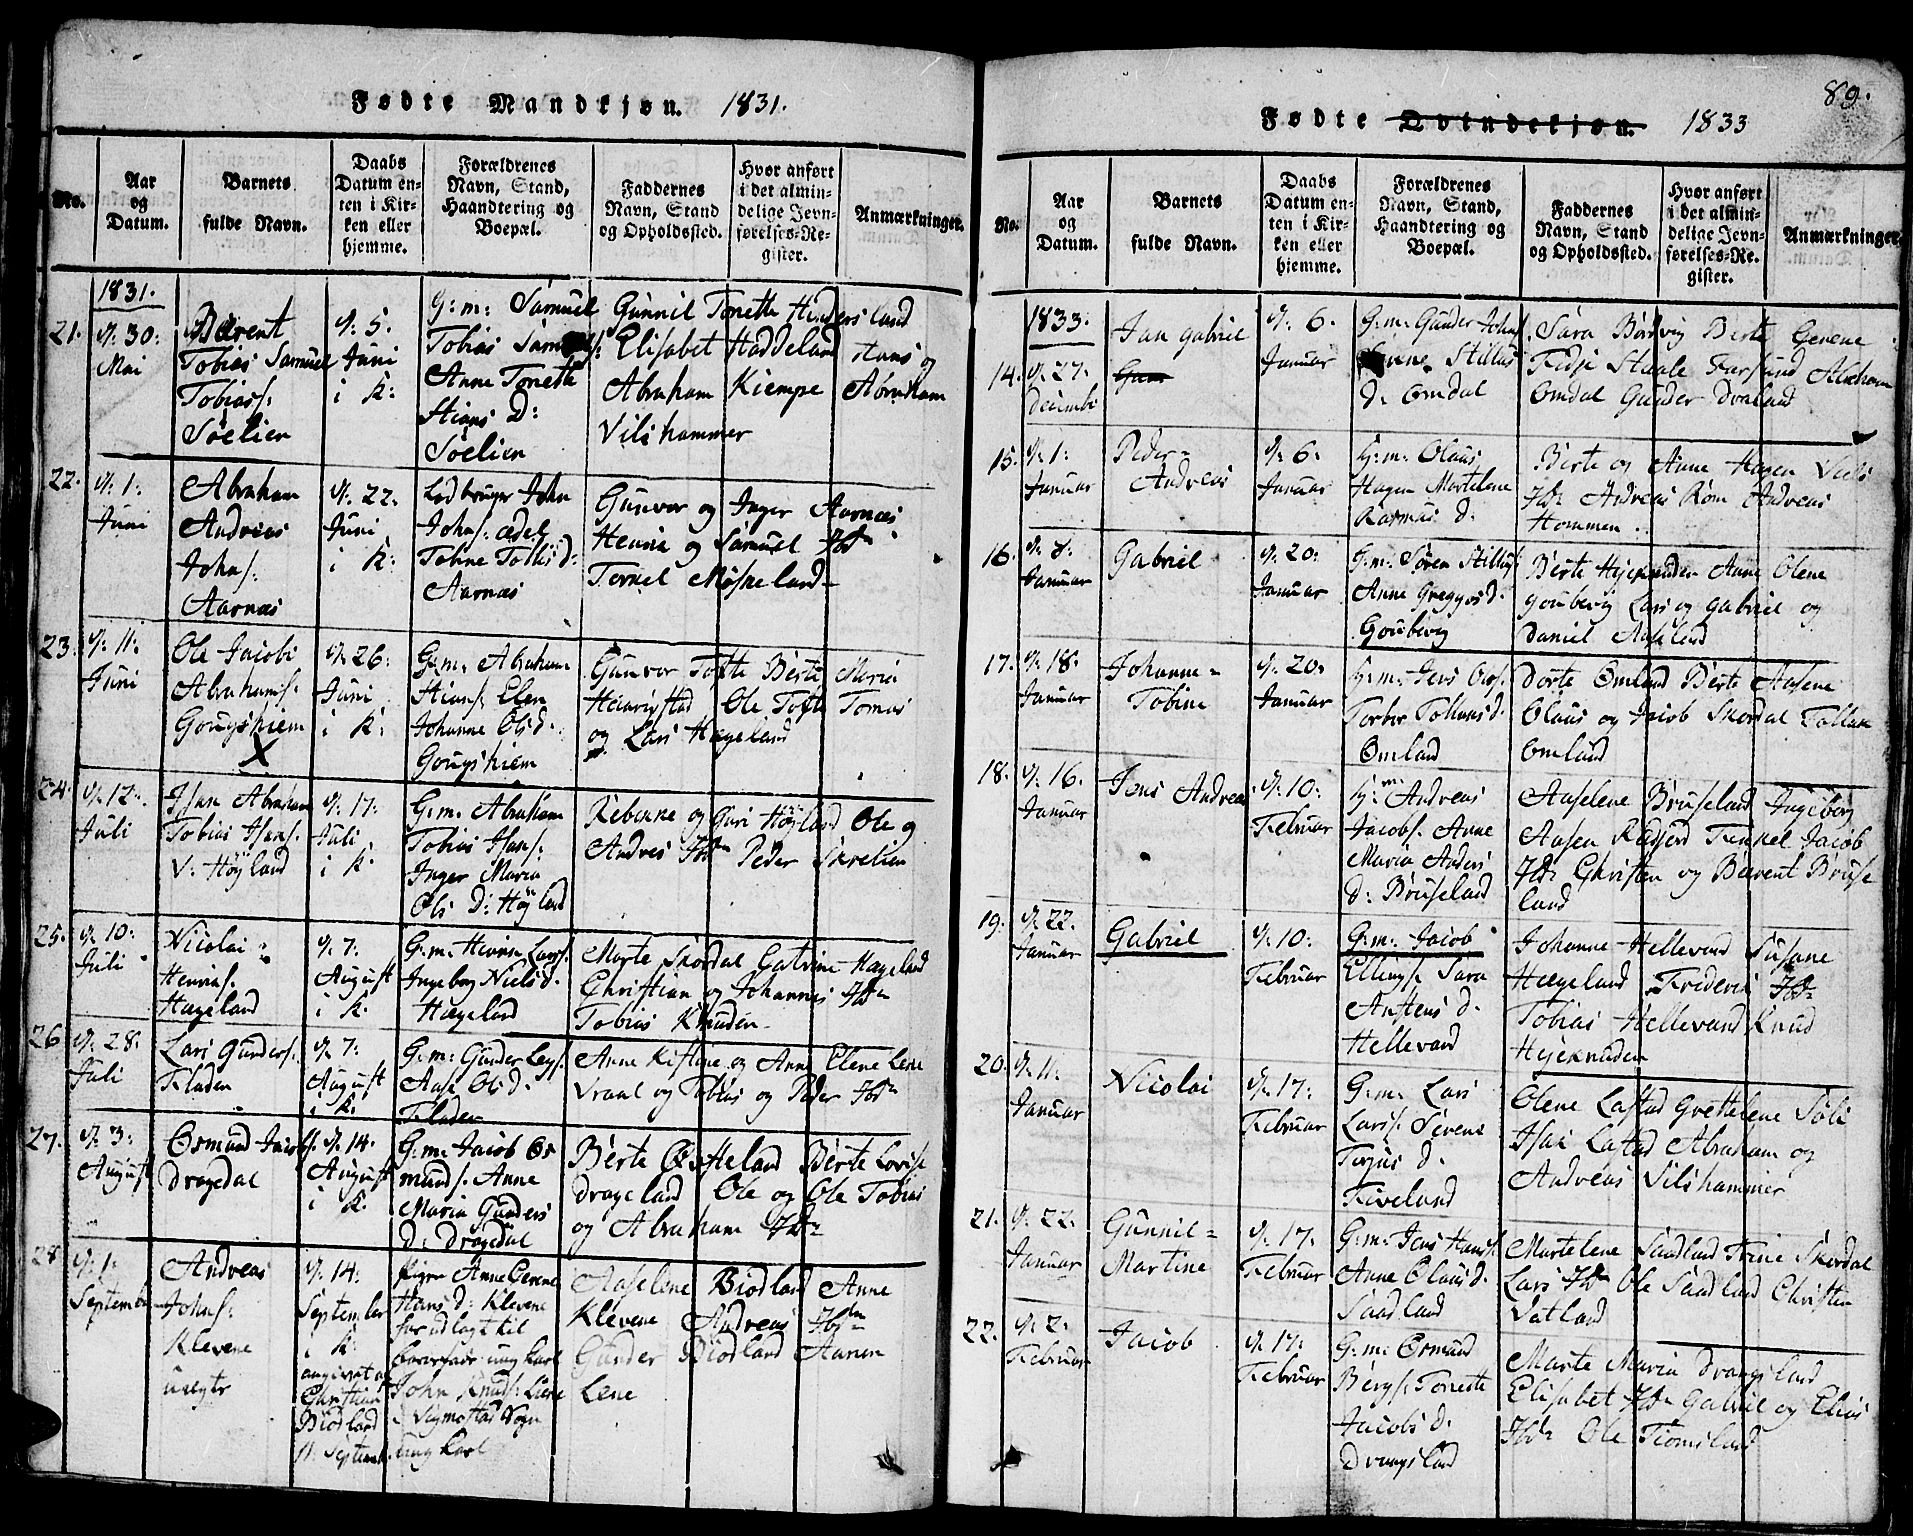 Fødte Mandkjøn. 1831.
No.
Aar
og
Datum.
Barnets
fulde Navn.
Daabs
Datum en-
ten i Kir-
ken eller
hjemme.
Forældrenes
Navn, Stand,
Haandtering og
Boepæl.
Faddernes
Navn, Stand
og Opholdssted.
Hvor anført
i det almin-
delige Jevn-
førelses-Re-
gister.
Anmærkninger.
1831.
21.
d. 30:
Mai
Bærent
Tobias Samuel
Tobiass:
Søelien
d. 5.
Juni
i K:
G: m: Samuel
Tobias
Anne Tonette
D:
Søelien
Gunnil Tonette Hindersland
Elisabet Haddeland Hans og
Abraham Kiempe Abraham
Vilshammer
22.
d. 1:
Juni
Abraham
Andreas
Johns:
Aarnæs
d. 22.
Juni
i K:
John
Johns:
Tohne
Aarnæs
Gunvor og Inger Aarnæs
Henric og Samuel Ibdn
Tornel
23.
d. 11:
Juni
Ole Jacob
Abrahams:
Gougshiem
X
d. 26:
Juni
i K:
G: m: Abraham
Elen
Johanne Ols d:
Gougshiem
Gunvor Tofte Berte Maria
Ole Tofte Tomas
og Lars Hageland
24.
d. 12.
Juli
Isac Abraham
Tobias Isacs:
V: Høyland
d. 17:
Juli
i K:
G: m: Abraham
Tobias Isacs:
Inger Maria
Ols D: Høyland
og Guri Høyland Ole og
Andres Ibdn Peder Skrelien
25.
d. 10:
Juli
Nicolai
Henrics:
Hageland
d. 7:
August
i K.
G: m: Henric Larss:
Ingeborg Niels d.
Hægeland
Marte Skordal Hageland
Christian og Johannes Ibdn
Tobias Knuden
26
d. 28:
Juli
Lars Gunders:
Fladen
d. 7:
August
i K:
G: m: Gunder
Aase Ols d:
Fladen
Anne og Anne Elene Lene
Vraal og Tobias og Peder Ibdn
27.
d. 3:
August
Osmund Jacobs:
Dragedal
d. 14.
August
i K.
G: m: Jacob Os
munds: Anne
Maria Gunders
D: Dragedal
Berte Østteland Berte Lovise
Drageland Ole og Ole Tobias
og Abraham Ibdn
28
d. 1:
September
Andreas
Johns:
Klevene
uægte
d. 14.
September
i K:
angivet af
Christian
Biodland
11 Septemb.
Pigen Anne Gerene
Hans d: Klevene
for udlagt til
Barnefader ung karl
John Knuds: Liene
i Sogn
ung karl
Aaselene Biodland Anne
Klevene Andreas Ibdn
Gunder Biodland Aanen
Lene
89.
Fødte Qvindekjøn. 1833
No.
Aar
og
Datum.
Barnets
fulde Navn.
Daabs
Datum en-
ten i Kir-
ken eller
hjemme.
Forældrenes
Navn, Stand,
Haandtering og
Boepæl.
Faddernes
Navn, Stand
og Opholdssted.
Hvor anført
i det almin-
delige Jevn-
førelses-Re-
gister.
Anmærkninger.
1833.
14.
d. 27.
Decimbr
Jan Gabriel
d. 6.
Januar
G: m: Gunder Johns:
d. Omdal
Sara Børvig Berte Gerene
Staale Farsund Abraham
Omdal Gunder
15.
d. 1:
Januar
Peder
Andreas
d. 6:
Januar
G: m: Olaus
Hagen Martelene
Rasmus d:
Berte og Anne Hagen
Ibdn Andreas Rom Andreas
Hommen
16.
d. 8:
Januar
Gabriel
d. 20:
Januar
G: m: Søren
Anne Gregors d.
Goubevig
Berte Hejeknuden Anne Olene
Goubevig Lars og Gabriel og
Daniel Aaseland
17.
d. 18.
Januar
Johanne
Tobine
d. 20:
Januar
G: m: Jens Ols:
Torbor d:
Omland
Dorte Omland Berte Aasene
Olaus og Jacob Skordal Tollak
Omland
18.
d. 16.
Januar
Jens Andreas
d. 10:
Februar
G: m: Andreas
Jacobs: Anne
Maria Anders
d: Bruseland
Aaselene Bruseland Ingeborg
Aasen Jacob
Ibdn Christen og Bærent Bruse
land
19.
d. 22.
Januar
Gabriel
d. 10:
Februar
G: m: Jacob
Ellings: Sara
Austens d.
Hellevand
Johanne Hellevand Susane
Hægeland Frideric Ibdn
Tobias Hellevand Knud
Hejeknuden
20.
d. 11:
Januar
Nicolai
d. 17:
Februar
G: m: Lars
Larss: Serene
Terjus d:
Fiveland
Olene Lastad Grethelene Søli
Isac Lastad Abraham og
Andreas Vilshammer
21.
d. 22.
Januar
Gunnil
Martine
d. 17:
Februar
G: m: Jens Hans:
Anne Olaus d.
Saadland
Martelene Saadland Trine Skordal
Lars Ibdn Ole Saadland Christen
Vatland
22.
d. 2:
Februar
Jacob
d. 17:
Februar
G: m: Osmund
Bergs: Tonette
Jacobs d:
Drangsland
Marte Maria Drangsland
Elisabet Ibdn Gabriel og Elias
Ibdn Ole Tiomsland